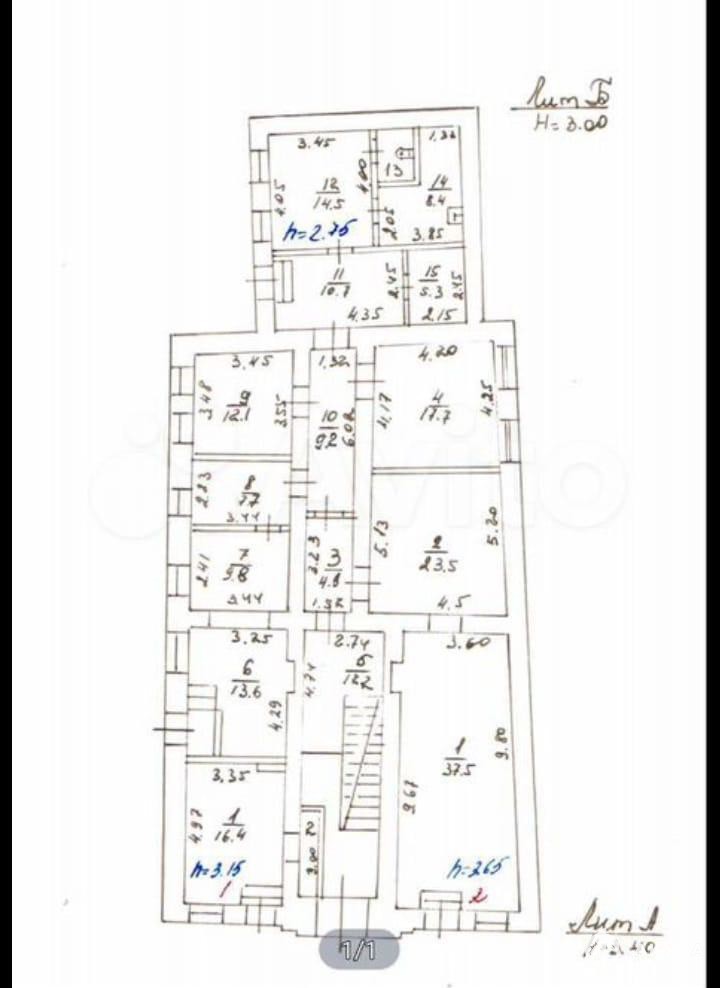 Лит Б
H=3.00
3.45
1,32
4.05
12
14.5
4.00
13
14
8.4
2.05
3.85
h=2.75
11
10.7
2.45
15
5.3
2.45
4.35
2.15
3.45
1,32
4.20
3.48
12.1
3.55
10
9.2
6.02
4.17
4
17.7
4.25
Avito
2.23
8
7.7
3.44
5.13
2
23.5
5.20
2.41
7
9.8
3.44
3.23
3
4.9
1.52
4.5
3.25
2.74
3.60
6
13.6
4.29
4.74
5
12.2
1
37.5
9.80
9.67
3.35
4.97
1
16.4
h=3.15
1
h=265
2
Лит А
1/1